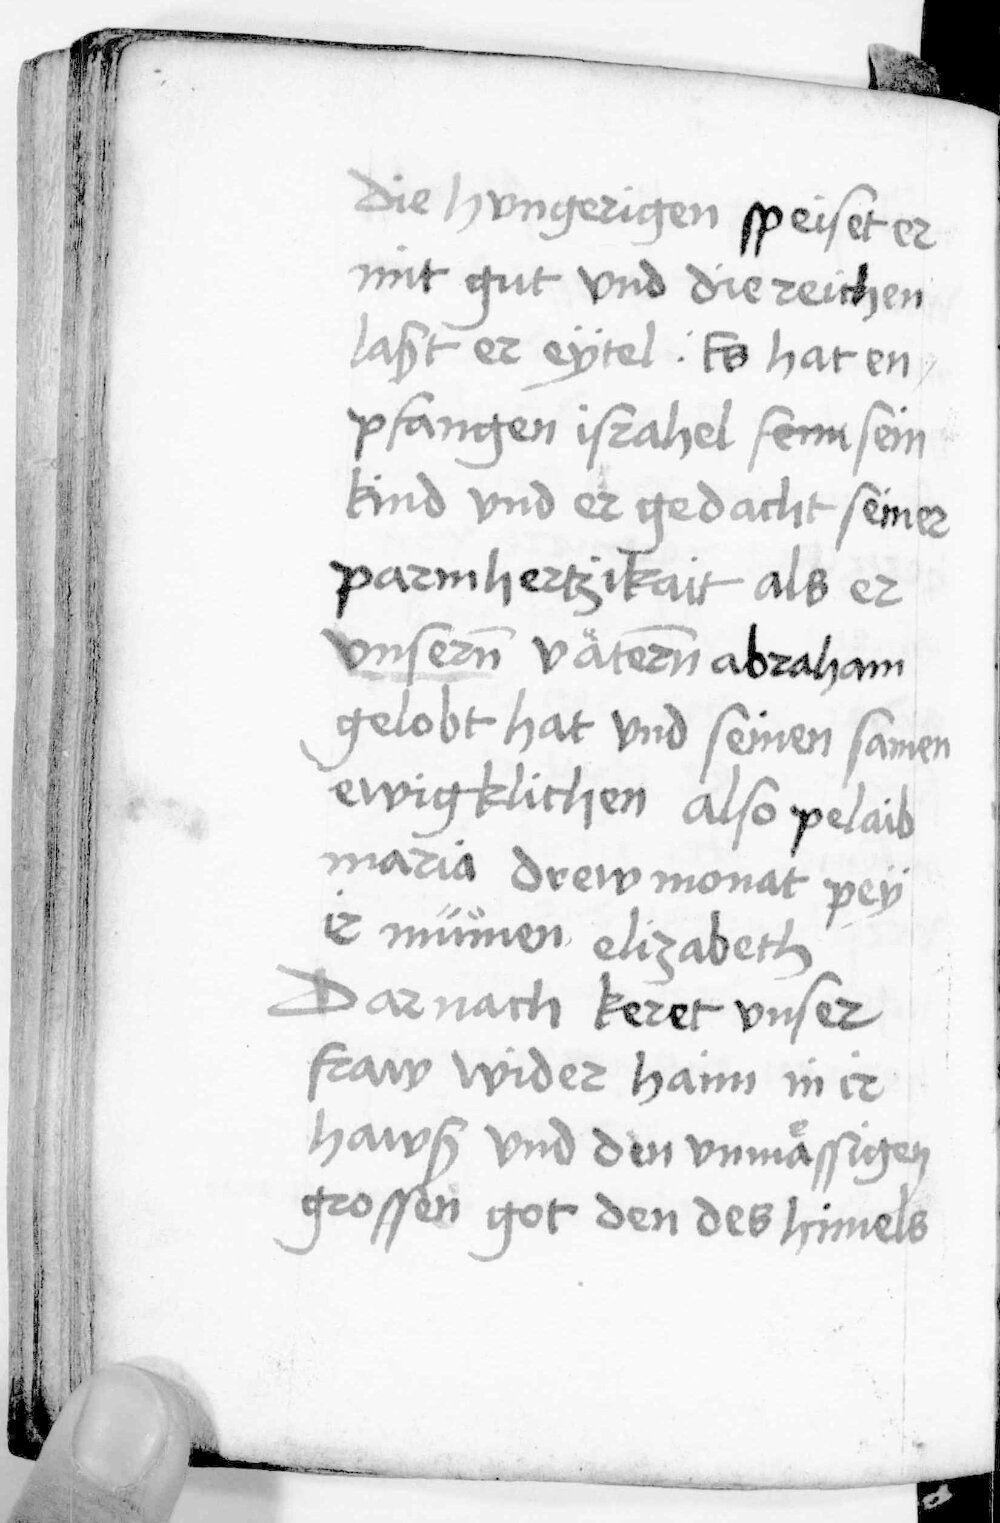 Die hvngerigen speiset er
mit gut vnd die reichen
laßt er eÿtel . Es hat en
pfangen israhel sein
kind vnd er gedacht seiner
parmhertzikait als er
vnsern̄ vätern̄ abraham
gelobt hat vnd seinen samen
ewigklichen also pelaib
maria drew monat peÿ
ir mümen elizabeth
Darnach keret vnser
fraw wider haim in ir
hawß vnd den vnmässigen
grossen got den des himels